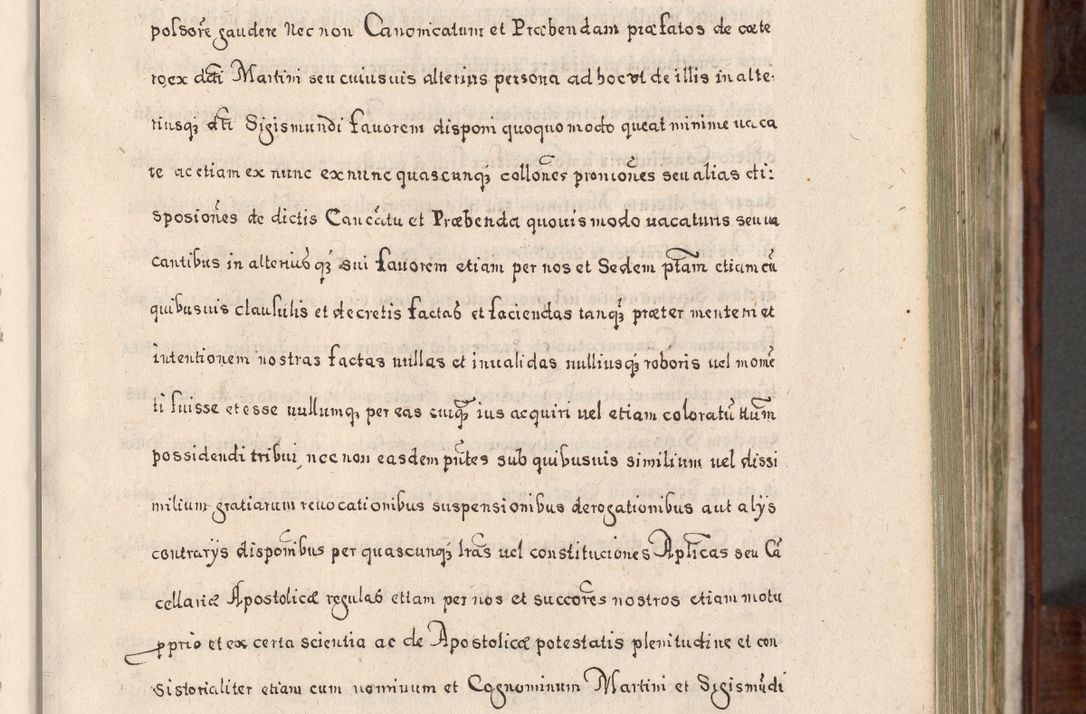 possore gaudere Nec non Canonicatum et Præbendam præfatos de cæte
ro ex dcti Martini seu cuiusuis alterius persona ad hoc vt de illis in alte-
riusq3 dti Sigismundi fauorem disponi quoquo modo queat minime uaca
re ac etiam ex nunc ex nunc quascunq3 collones prouiones seu alias di:
spositiones de dictis Cancatu et Præbenda quouis modo uacaturis seu ua
cantibus in alteriusq3 sui fauorem etiam per nos et Sedem ptam etiam cu
quibusuis clausulis et decretis factas et faciendas tanq3 præter mentem et
intentionem nostras factas nullas et inualidas nulliusq3 roboris uel mome
ti fuisse et esse nullumq3 per eas cuiq3 ius acquiri uel etiam coloratu tlum
possidendi tribui, nec non easdem pntes sub quibusuis similium uel dissi
milium gratiarum reuocationibus suspensionibus derogationibus aut alijs
contrarijs disponibus per quascunq3 lras uel constituciones Aplicas seu Ca
cellariæ Apostolicæ regulas etiam per nos et succores nostros etiam motu
pprio et ex certa scientia ac de Apostolicæ potestatis plenitudine et con
sistorialiter etiam cum nominum et Cognominum Martini et Sigismudi